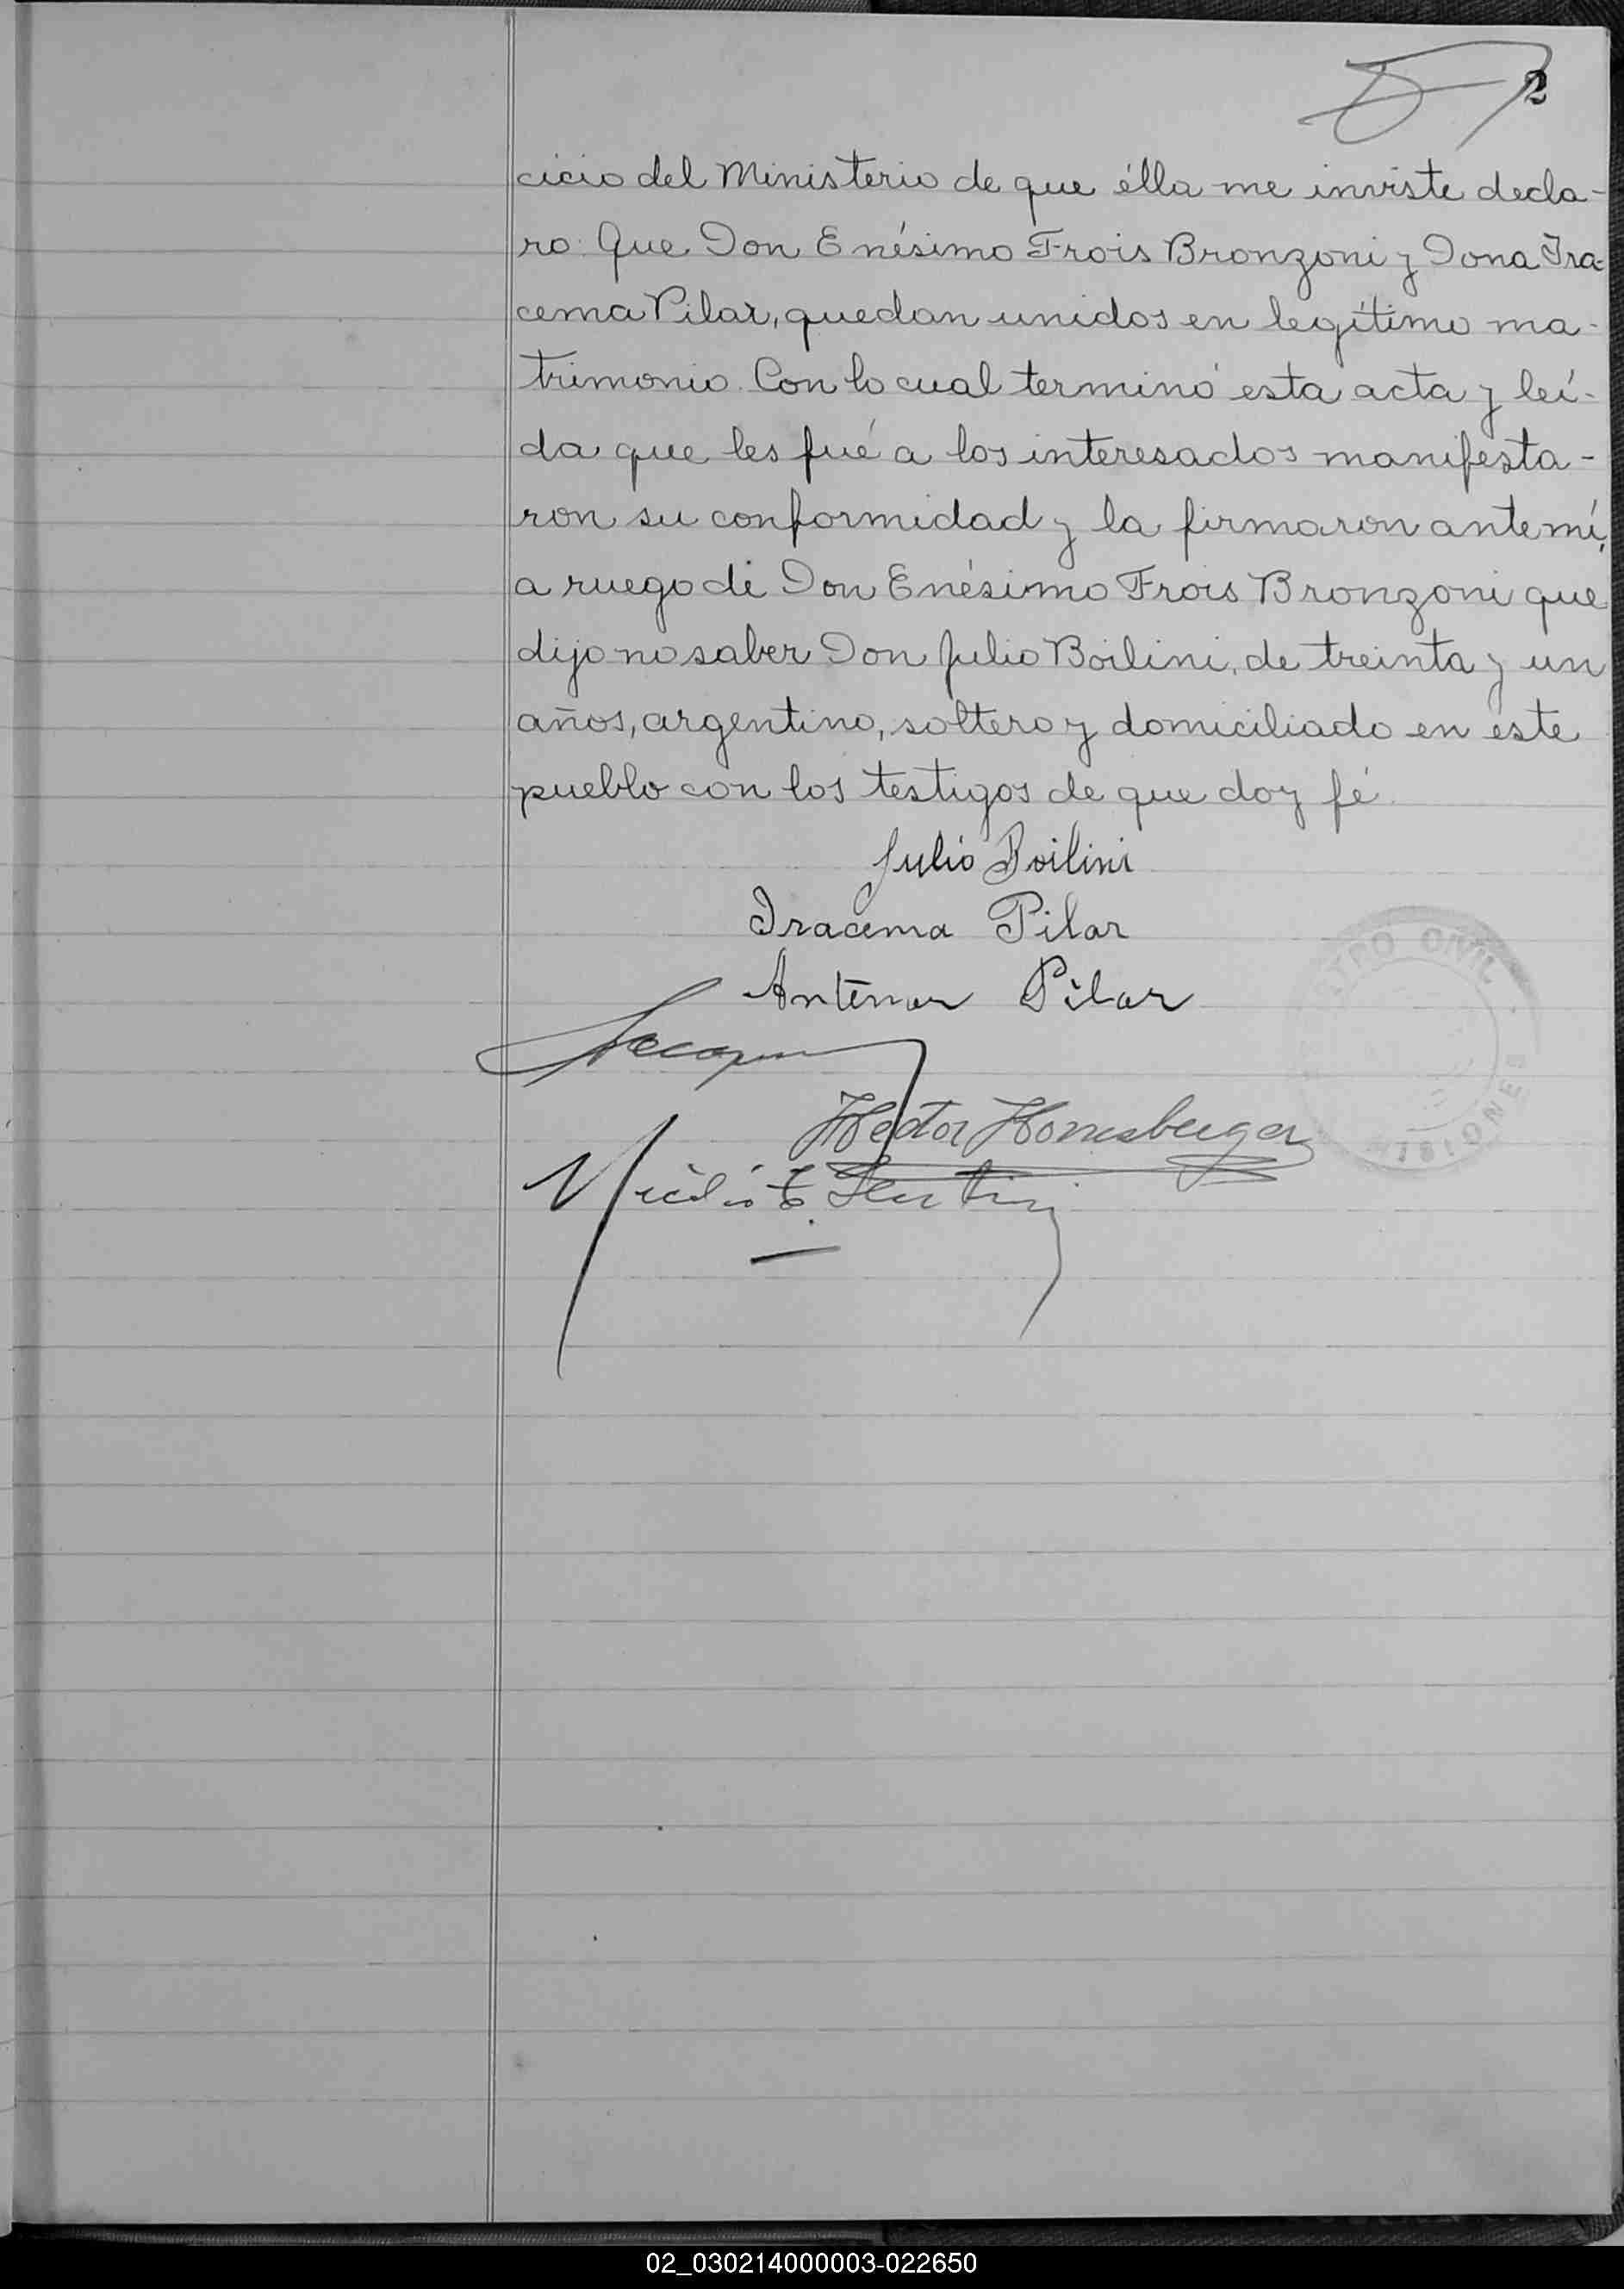 2
cicio del Ministerio de que élla me inviste decla-
ro: Que Don Enésimo Frois Bronzoni y Dona Ira-
cema Pilar, quedan unidos en legítimo ma-
trimonio. Con lo cual terminó esta acta y leí-
da que les fué a los interesados manifesta-
ron su conformidad y la firmaron ante mí,
a ruego de Don Enésimo Frois Bronzoni que
dijo no saber Don Julio Boilini, de treinta y un
años, argentino, soltero y domiciliado en éste
pueblo con los testigos de que doy fé.
Julio Boilini
Iracema Pilar
Antenor Pilar
Hector
CIVIL
MISIONES
02_030214000003-022650